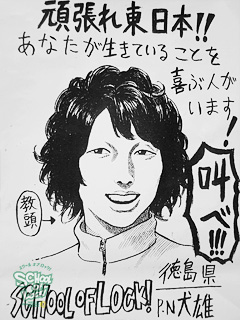 頑張れ東日本!!
あなたが生きていることを
喜ぶ人が
います!
叫べ!!!
教頭
SCHOOL OF LOCK!
徳島県
P.N 犬雄